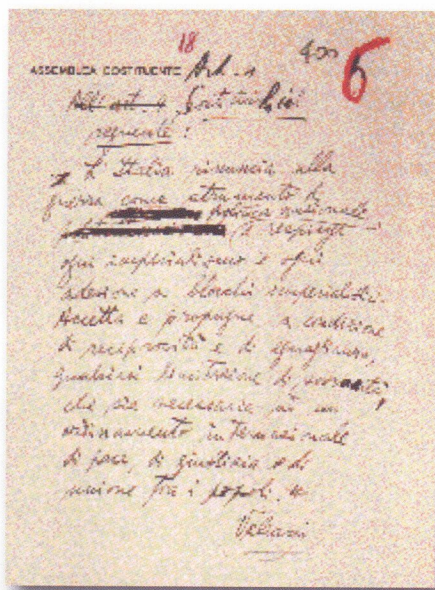 18
400 6
ASSEMBLEA COSTITUENTE Art. 4
All'art. 4 Sostituirlo
seguente:
"L'Italia rinuncia alla
guerra come strumento di
politica nazionale
e respinge
ogni imperialismo e ogni
adesione a blocchi imperialistici.
Accetta e propugna, a condizione
di reciprocità e di eguaglianza,
qualsiasi limitazione di sovranità,
che sia necessaria ad un
ordinamento internazionale
di pace, di giustizia e di
unione fra i popoli."